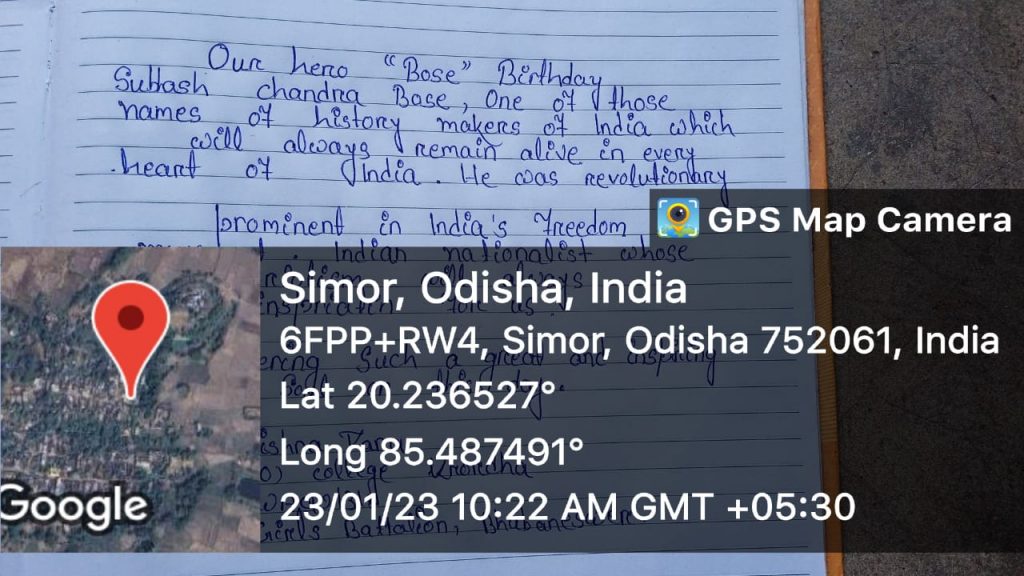 Our hero "Bose" Birthday
Subhash chandra Bose, One of those
names of history makers of India which
will always remain alive in every
heart of India. He was revolutionary
prominent in India's Freedom
Indian nationalist whose
always
inspiration for us.
Such a great and inspiring
on this day.
college
Girls Battalion, Bhubaneswar
GPS Map Camera
Simor, Odisha, India
6FPP+RW4, Simor, Odisha 752061, India
Lat 20.236527°
Long 85.487491°
23/01/23 10:22 AM GMT +05:30
Google